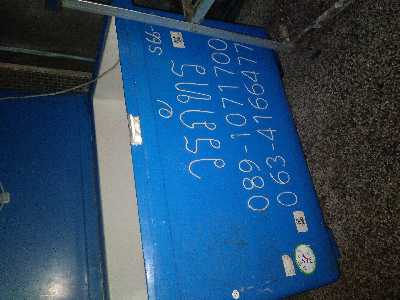 S66-
วรภัทร
089-1071700
063-4166477